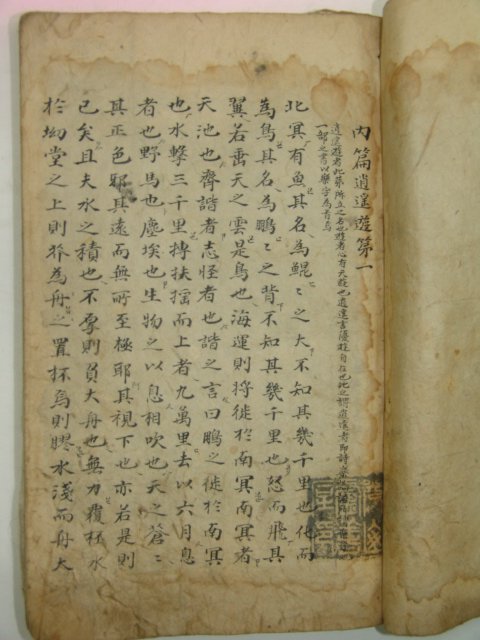 內篇逍遙遊第一
逍遙遊者此篇所立之名也遊者心有天遊也逍遙言優遊自在也
一部之書以樂字爲首
北冥有魚其名為鯤〻之大不知其幾千里也化而
為鳥其名為鵬〻之背不知其幾千里也怒而飛其
翼若垂天之雲是鳥也海運則將徙於南冥南冥者
天池也齊諧者志怪者也諧之言曰鵬之徙於南冥
也水擊三千里摶扶搖而上者九萬里去以六月息
者也野馬也塵埃也生物之以息相吹也天之蒼〻
其正色邪其遠而無所至極耶其視下也亦若是則
已矣且夫水之積也不厚則負大舟也無力覆杯水
於坳堂之上則芥為舟之置杯焉則膠水淺而舟大